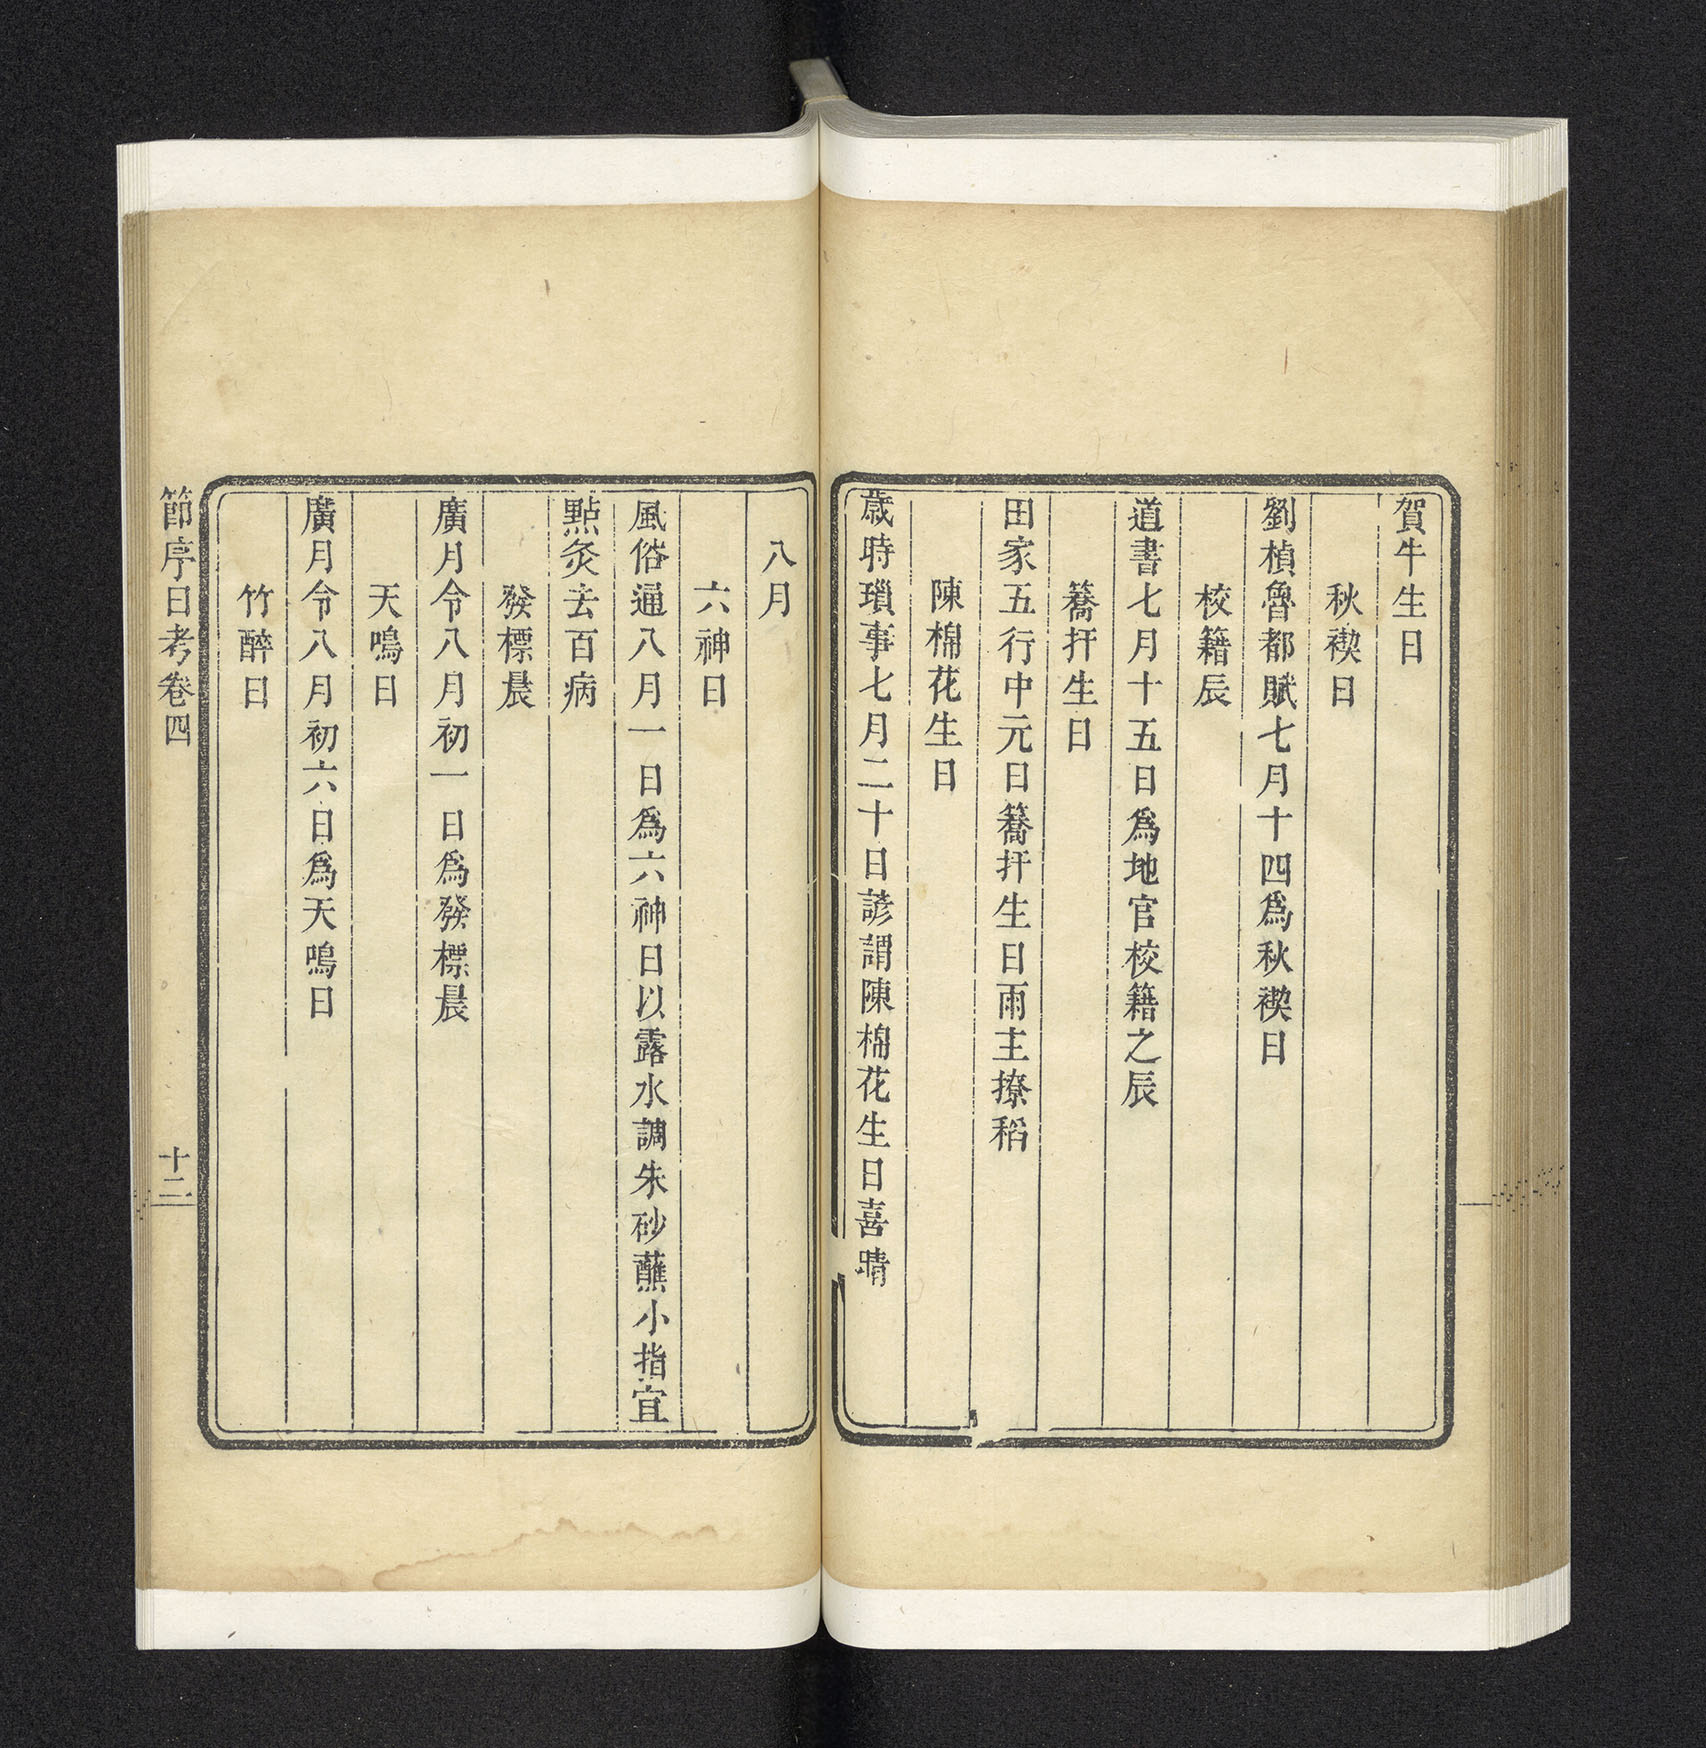 賀牛生日
秋禊日
劉楨魯都賦七月十四爲秋禊日
校籍辰
道書七月十五日爲地官校籍之辰
蕎扞生日
田家五行中元日蕎扞生日雨主撩稻
陳棉花生日
歲時瑣事七月二十日諺謂陳棉花生日喜晴
八月
六神日
風俗通八月一日爲六神日以露水調朱砂蘸小指宜
點灸去百病
發標晨
廣月令八月初一日爲發標晨
天鳴日
廣月令八月初六日爲天鳴日
竹醉日
節序日考卷四
十二